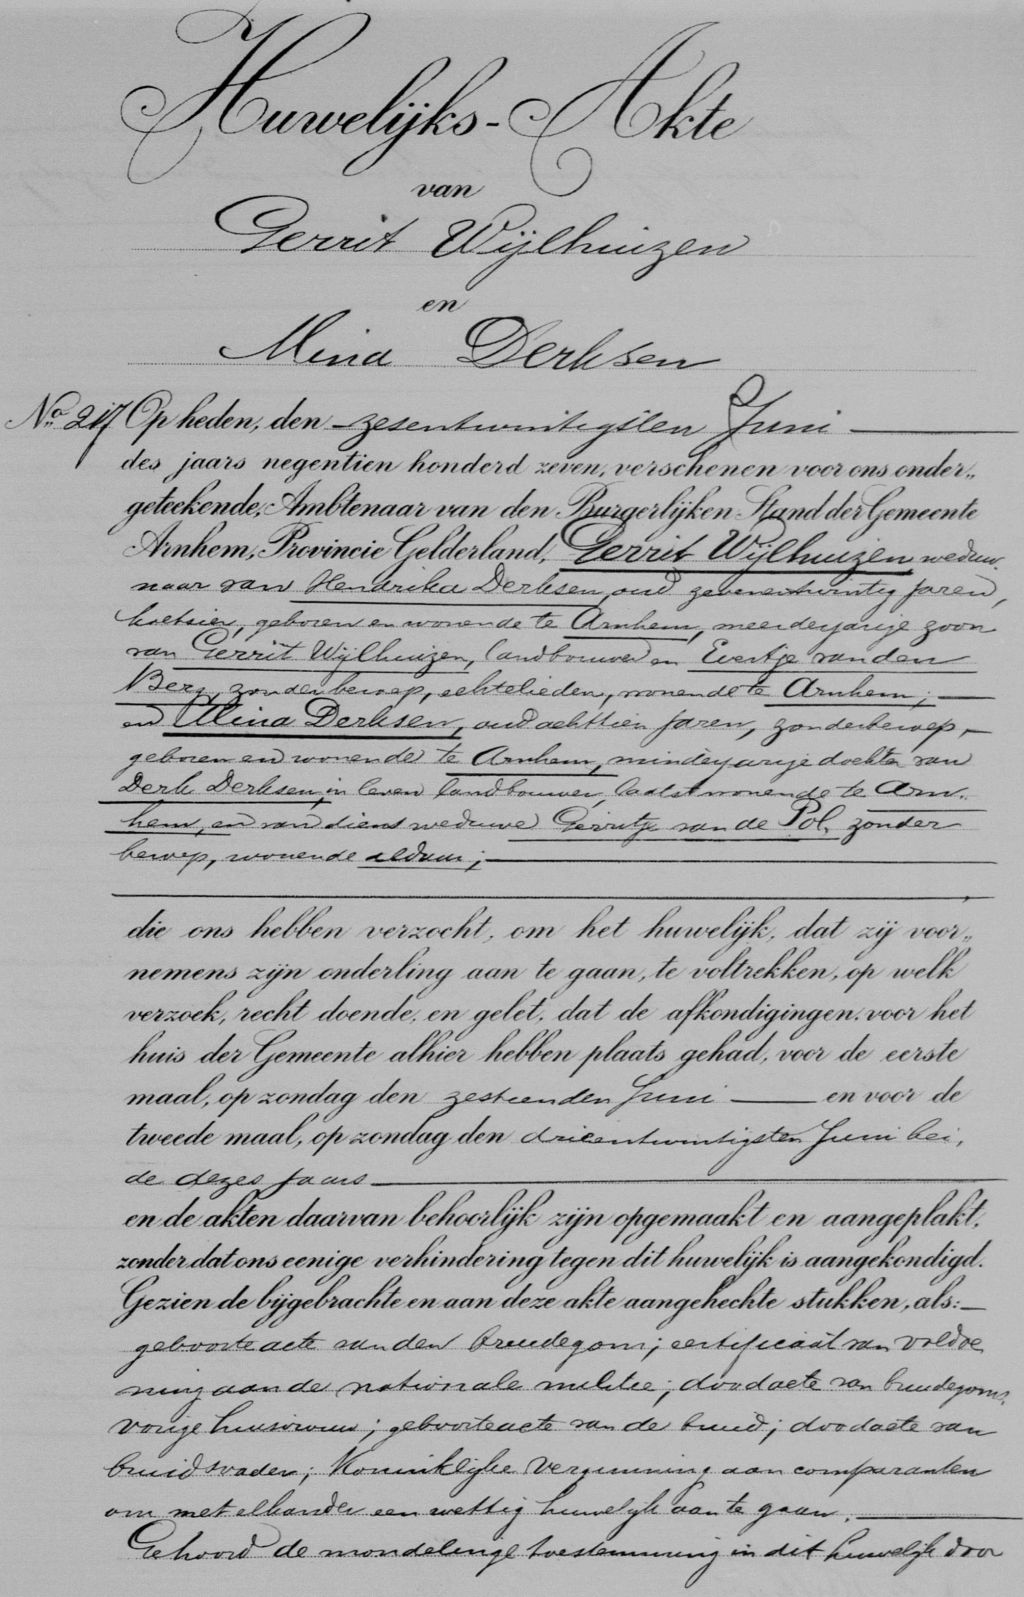 Huwelijks-Akte
van
Gerrit Wijlhuizen
en
Mina Derksen
No. 217 Op heden, den zesentwintigsten Juni
des jaars negentien honderd zeven, verschenen voor ons onder„
geteekende, Ambtenaar van den Burgerlijken Stand der Gemeente
Arnhem, Provincie Gelderland, Gerrit Wijlhuizen weduw.
naar van Hendrika Derksen, oud zevenentwintig jaren,
koetsier, geboren en wonende te Arnhem, meerderjarige zoon
van Gerrit Wijlhuizen, landbouwer en Evertje van den
Berg, zonder beroep, echtelieden, wonende te Arnhem;
en Mina Derksen, oud achttien jaren, zonder beroep,
geboren en wonende te Arnhem, minderjarige dochter van
Derk Derksen, in leven landbouwer, laatst wonende te Arn.
hem, en van diens weduwe Gerritje van de Pol, zonder
beroep, wonende aldaar;
die ons hebben verzocht, om het huwelijk, dat zij voor„
nemens zijn onderling aan te gaan, te voltrekken, op welk
verzoek, recht doende, en gelet, dat de afkondigingen, voor het
huis der Gemeente alhier hebben plaats gehad, voor de eerste
maal, op zondag den zestienden Juni en voor de
tweede maal, op zondag den drieentwintigsten Juni bei,
de dezes jaars
en de akten daarvan behoorlijk zijn opgemaakt en aangeplakt,
zonder dat ons eenige verhindering tegen dit huwelijk is aangekondigd.
Gezien de bijgebrachte en aan deze akte aangehechte stukken, als:
geboorteacte van den bruidegom; certificaat van voldoe
ning aan de nationale militie; doodacte van bruidegoms.
vorige huisvrouw; geboorteacte van de bruid; doodacte van
bruidsvader; Koninklijke vergunning aan comparanten
om met elkander een wettig huwelijk aan te gaan.
Gehoord de mondelinge toestemming in dit huwelijk door